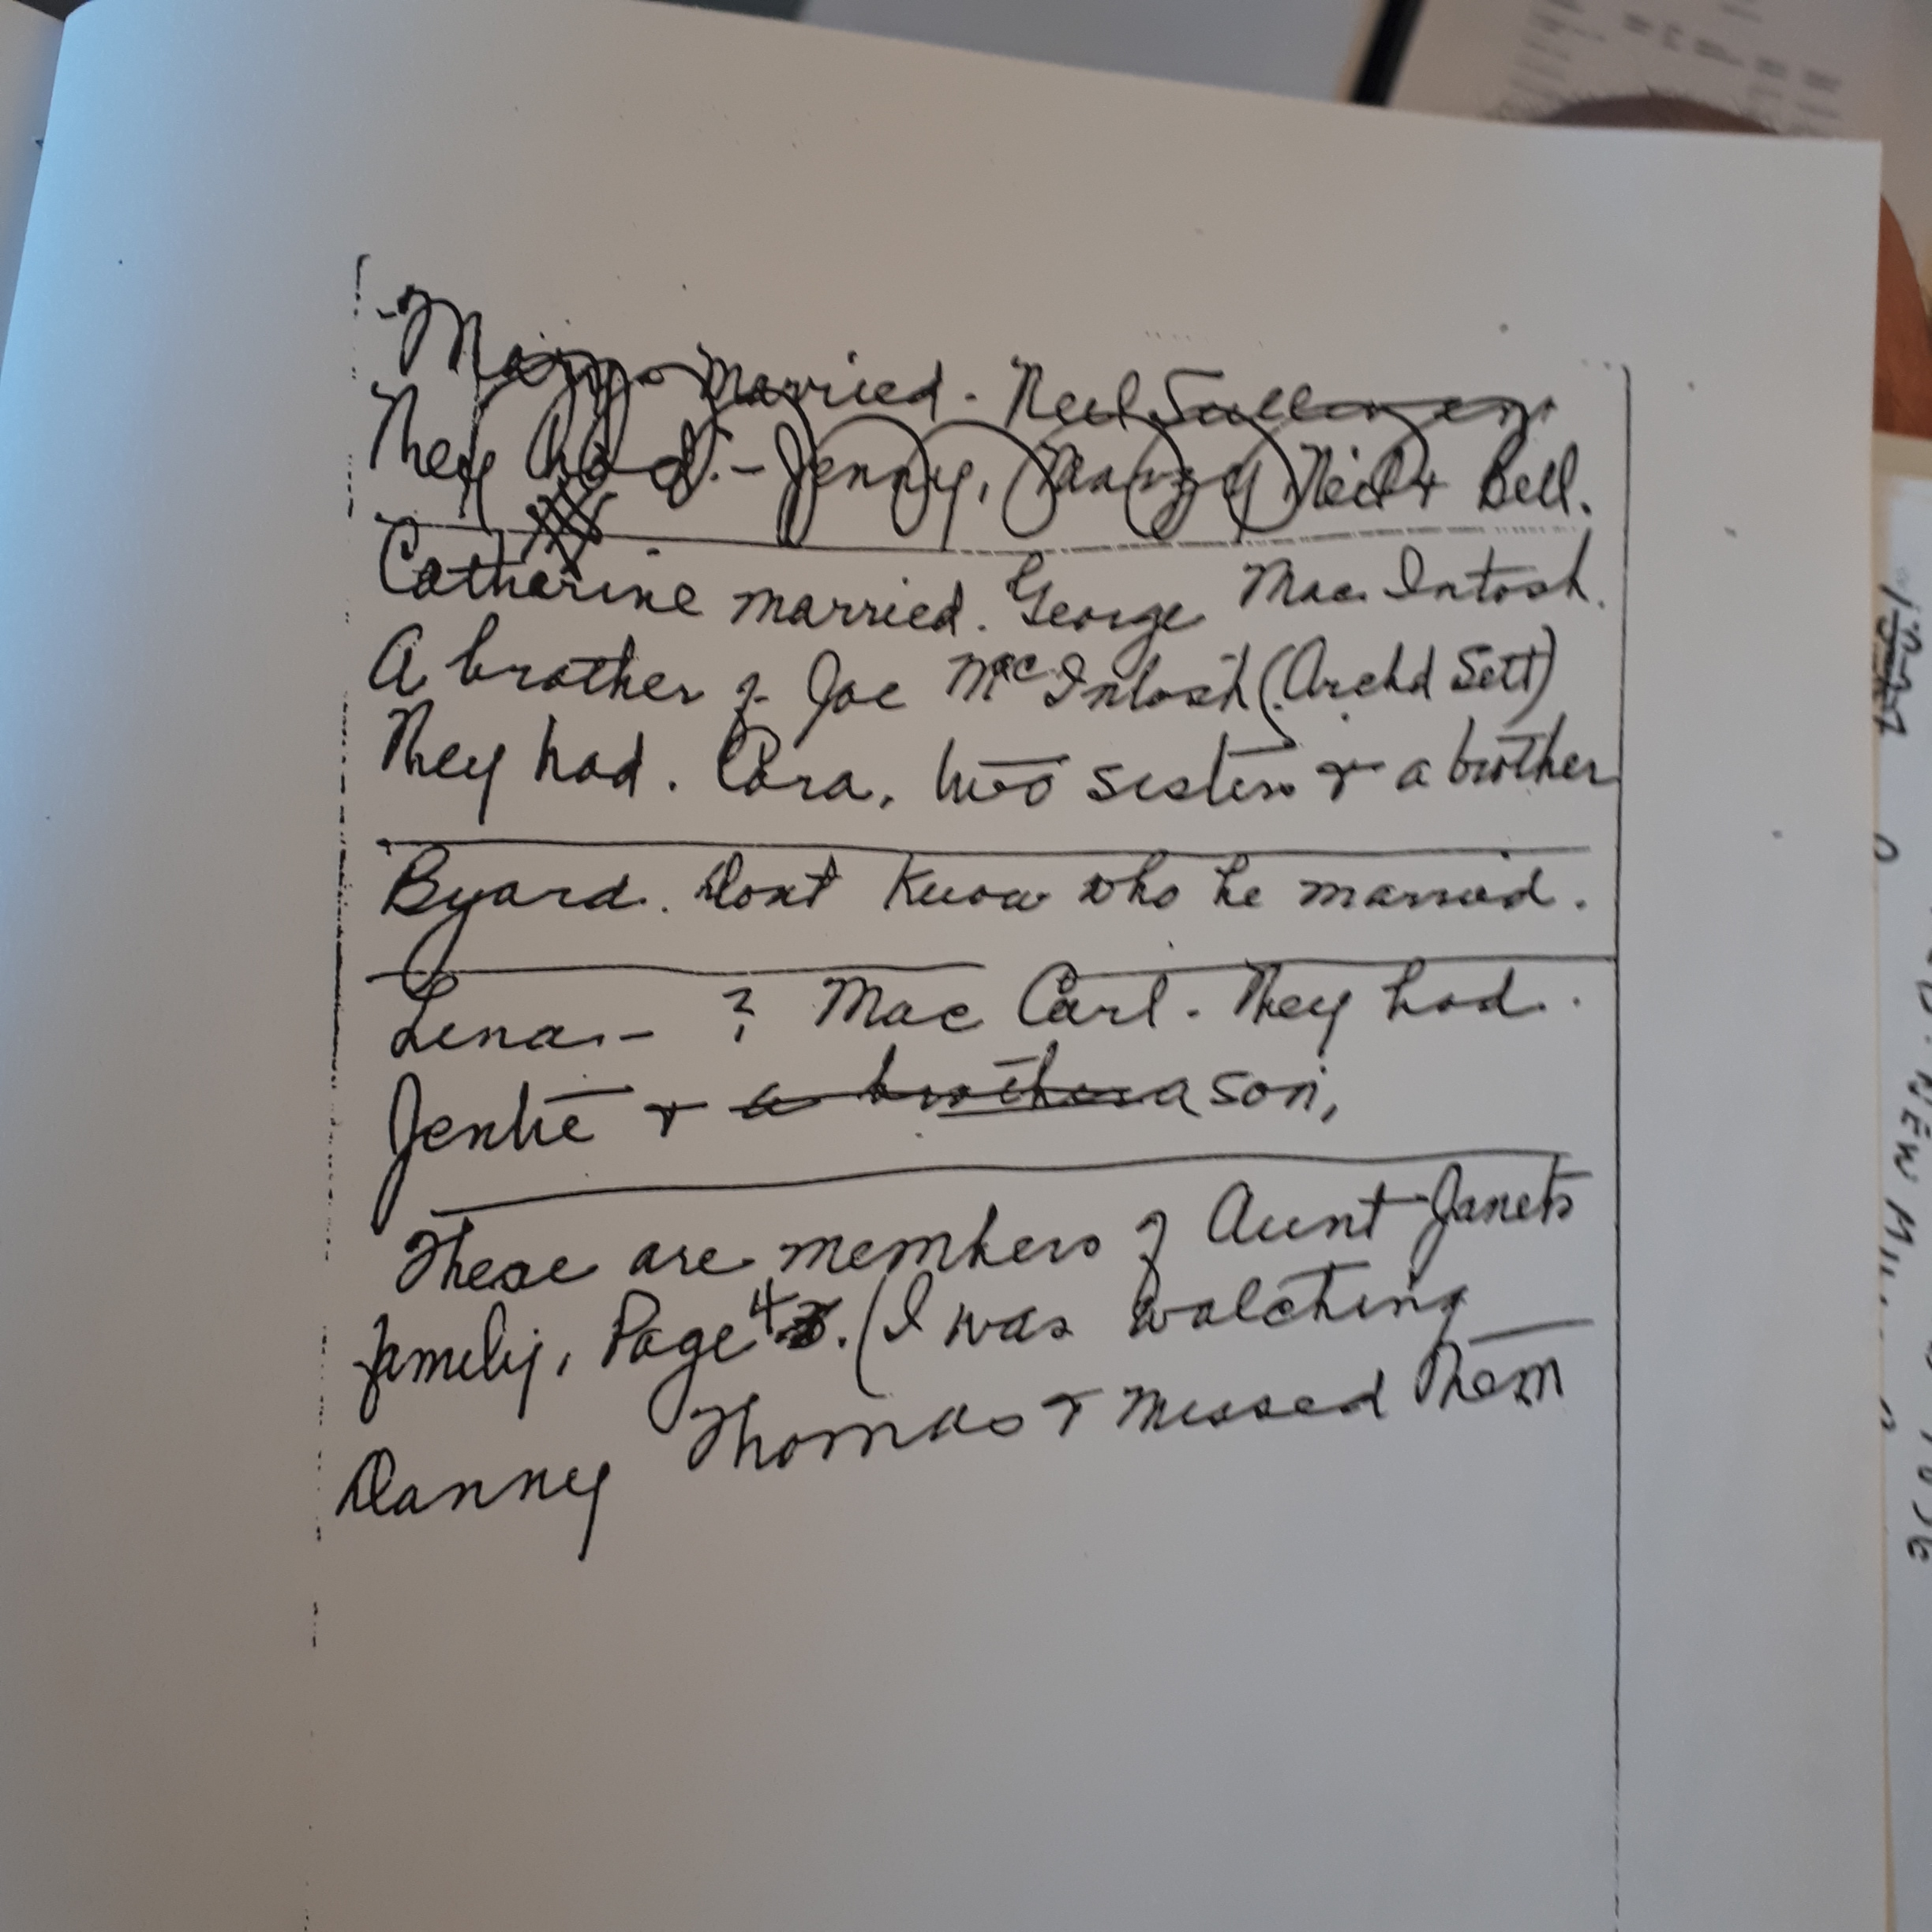 Mary married. Neil Sullivan
They had. - Jenny, Mary, Neil + Bell.
Catherine married. George Mac Intosh.
A brother of Joe MacIntosh (Archd Sett)
They had. Cora, two sisters + a brother
Byard. Dont Know who he married.
Lena. - ? Mac Carl. They had.
Jentie + a brother a son,
These are members of Aunt Janets
family, Page 4. (I was watching
Danny Thomas + missed Them
NEW